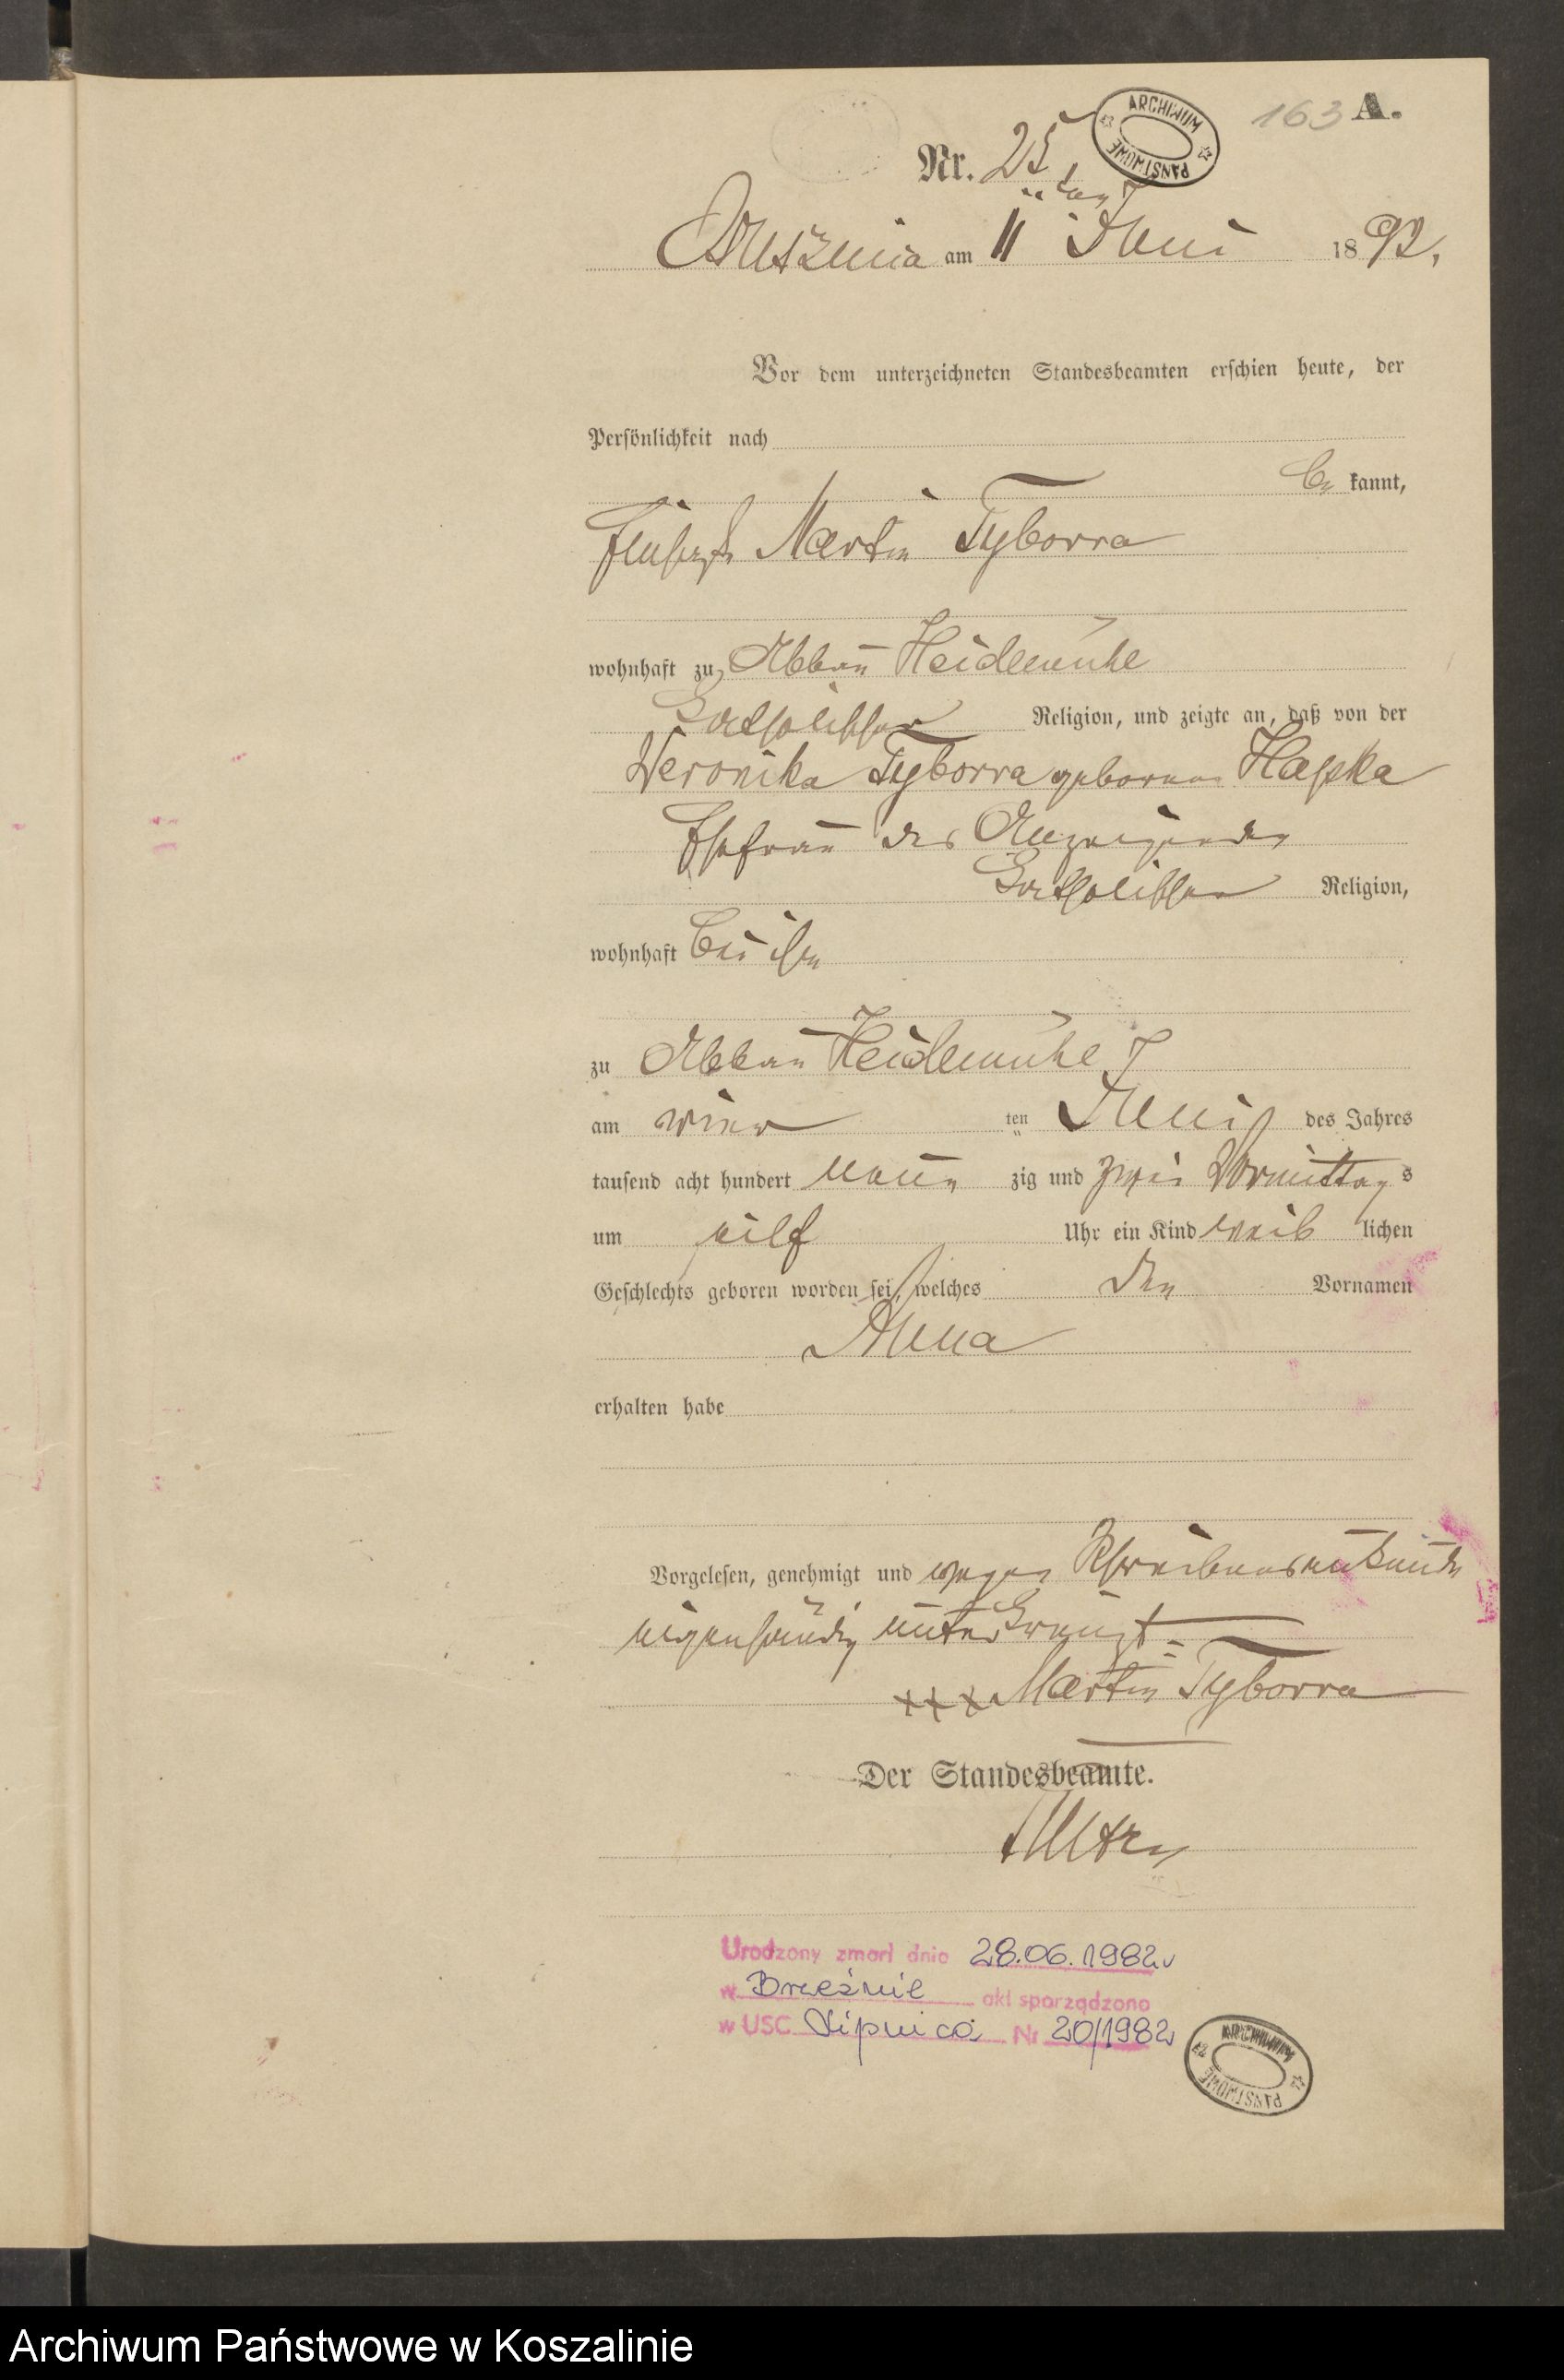 163 A.
ARCHIWUM PAŃSTWOWE
Nr. 25.
am 11 ten Juni 1892.
Vor dem unterzeichneten Standesbeamten erschien heute, der
Persönlichkeit nach
be kannt,
Martin Tyborra
wohnhaft zu Abbau Heidemühle
katholischer Religion, und zeigte an, daß von der
Veronika Tyborra geborenen Hapka
Ehefrau des Anzeigenden
katholischer Religion,
wohnhaft bei ihm
zu Abbau Heidemühle
am vier ten Juni des Jahres
tausend acht hundert neun zig und zwei Vormittag s
um eilf Uhr ein Kind weib lichen
Geschlechts geboren worden sei, welches den Vornamen
Anna
erhalten habe
Vorgelesen, genehmigt und wegen Schreibensunkunde
eigenhändig unterkreuzt
xxx Martin Tyborra
Der Standesbeamte.
Urodzony zmarł dnia 28.06.1982
w Brzeźnie akt sporządzono
w USC Lipnica Nr 20/1982
ARCHIWUM PAŃSTWOWE
Archiwum Państwowe w Koszalinie